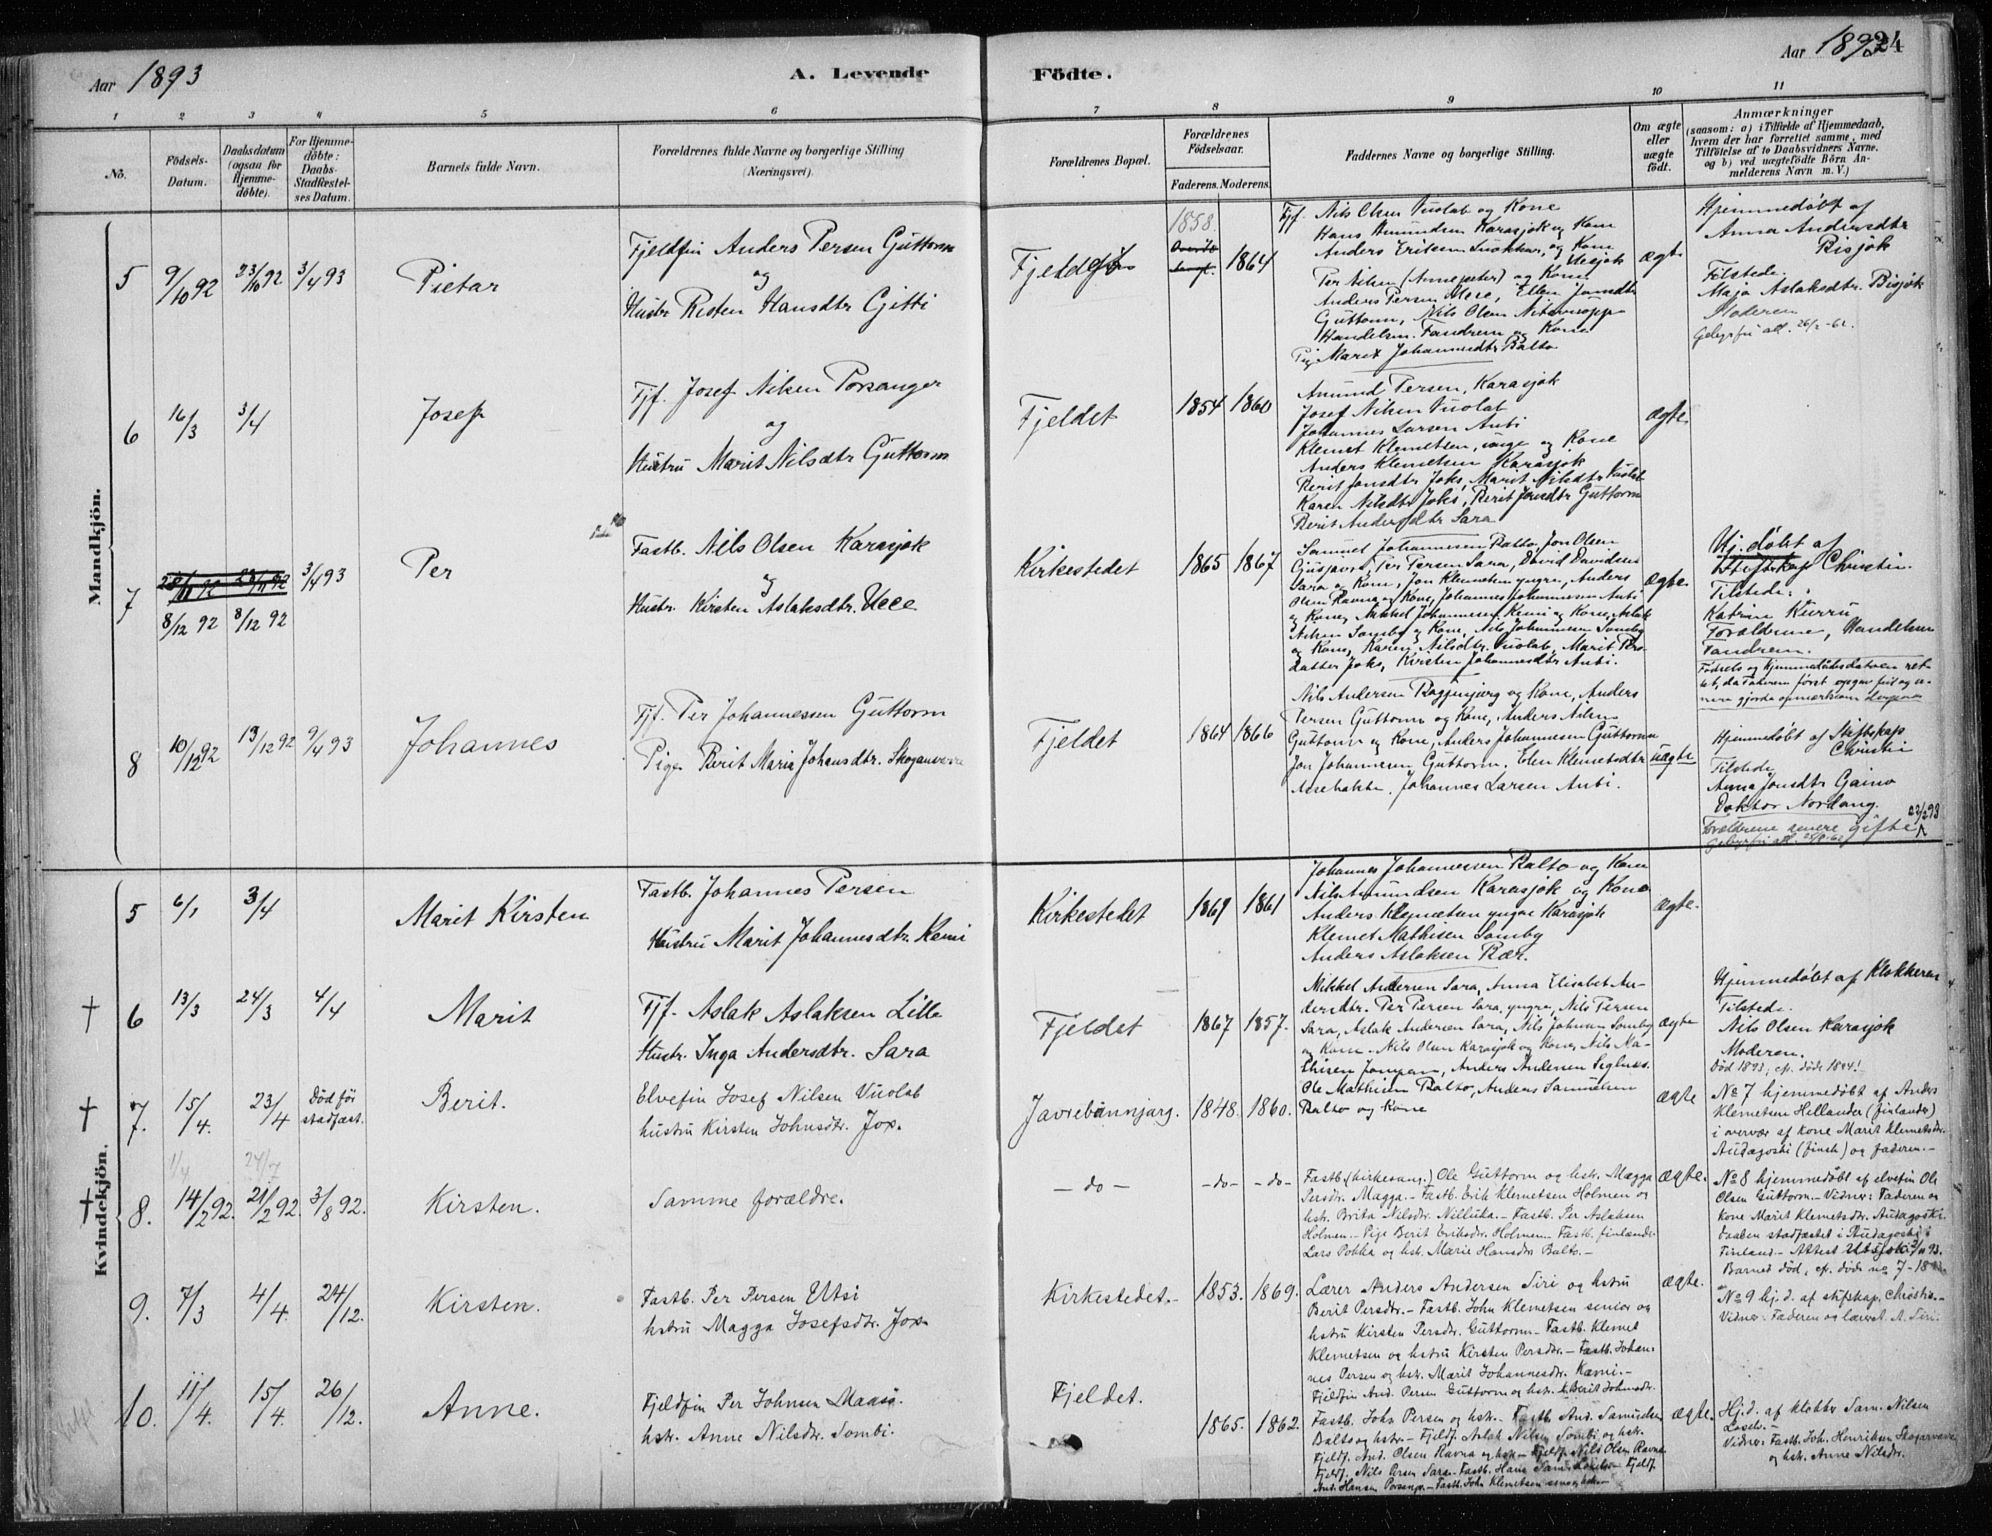 Aar 1893
A. Levende Födte.
Aar 1893
24
1 2 3 4 5 6 7 8 9 10 11
No.
Födsels-Datum.
Daabsdatum (ogsaa for Hjemme-döbte).
For Hjemme-döbte: Daabs-Stadfæstel-ses Datum.
Barnets fulde Navn.
Forældrenes fulde Navne og borgerlige Stilling (Næringsvei).
Forældrenes Bopæl.
Forældrenes Födselsaar.
Faderens. Moderens.
Faddernes Navne og borgerlige Stilling.
Om ægte eller uægte födt.
Anmærkninger
(saasom: a) i Tilfælde af Hjemmedaab, hvem der har forrettet samme, med Tilföielse af to Daabsvidners Navne, og b) ved uægtefödte Börn An-melderens Navn m. V.)
Mandkjön.
5 9/10 92 23/10 92 3/4 93 Pietar
Fjeldfin Anders Persen Guttorm
og
Hustr. Risten Hansdtr Gitti
Fjeldet 1858. 1864
Fjf. Nils Olsen Vuolab og Kone
Hans Amundsen Karasjok og Kone
Anders Eriksen og Kone
Per Nilsen og Kone
Anders Persen Ucce, Ellen Jonsdtr
Guttorm, Nils Olsen
Handelsm. Fandrem og Kone
Pige Marit Johannesdtr Balto
ægte
Hjemmedöbt af
Anna Andersdtr
Bisjok
Tilstede:
Maja Aslaksdtr. Bisjok
Moderen
Gebyrfri att. 26/2-62.
6 16/3 3/4 Josef
Fjf. Josef Nilsen Porsanger
og
Hustru Marit Nilsdtr Guttorm
Fjeldet 1854 1860
Amund Persen, Karasjok
Josef Nilsen Vuolab
Johannes Larsen Anti
Klemet Klemetsen, unge og Kone
Anders Klemetsen Karasjok
Berit Jonsdtr Joks, Marit Nilsdtr Vuolab
Karen Nilsdtr Joks, Berit Jonsdtr Guttorm
Berit Andersdtr Sara
ægte.
7 8/12 92 8/12 92 3/4 93 Per
Fastb. Nils Olsen Karasjok
og
Hustr. Kirsten Aslaksdtr. Ucce
Kirkestedet 1865 1867
Samuel Johannesen Balto, Jon Olsen
Per Persen Sara, David Davidsen
Sara og Kone, Jon Klemetsen yngre, Anders
Olsen Ravna og Kone, Johannes Johannesen Anti
og Kone, Mikkel Johannesen Kemi og Kone, Aslak
Nilsen Somby og Kone, Nils Johannesen Somby
og Kone, Karen Nilsdtr. Vuolab, Marit Pers-
datter Joks, Kirsten Johannesdtr Anti.
ægte.
Hj. döbt af
Stiftskap Christie.
Tilstede:
Katrin Kurru
Forældrene, Handelsm
Fandrem.
Födsels og Hjemmedaabsdatoen ret-
tet, da Faderen först opgav feil og se-
nere gjorde opmærksom derpaa
8 10/12 92 13/12 92 9/4 93 Johannes
Fjf. Per Johannessen Guttorm
Pige Berit Maria Johansdtr. Skoganvarre
Fjeldet 1864 1866
Nils Andersen og Kone, Anders
Persen Guttorm og Kone, Anders Nilsen
Guttorm og Kone, Anders Johannesen Guttorm
Jon Johannesen Guttorm, Elen Klemetsdtr
Assebakte. Johannes Larsen Anti.
uægte
Hjemmedöbt af Stiftskap
Christie
Tilstede
Anna Jonsdtr Gaino
Doktor Nordang.
Forældrene senere gifte 22/2 93
Gebyrfri att.
Kvindekjön.
5 6/1 3/4 Marit Kirsten
Fastb. Johannes Persen
Hustru Marit Johannesdtr. Kemi
Kirkestedet 1869 1861
Johannes Johannessen Balto og Kone
Nils Amundsen Karasjok og Kone
Anders Klemetsen yngre Karasjok
Klemet Mathisen Somby
Anders Aslaksen Bær.
ægte.
† 6 13/3 24/3 4/4 Marit
Fjf. Aslak Aslaksen Lille
Hustr. Inga Andersdtr. Sara
Fjeldet 1867 1857.
Mikkel Andersen Sara, Anna Elisabet An-
dersdtr. Per Persen Sara, yngre, Nils Persen
Sara, Aslak Andersen Sara, Nils Johnsen Somby
og Kone. Nils Olsen Karasjok og Kone, Nils Ma-
thisen, Anders Andersen
ægte
Hjemmedöbt af Klokkeren
Tilstede.
Nils Olsen Karasjok
Moderen.
Död 1893, cf. döde 1894!
† 7. 15/4. 23/4 Död för stadfæst. Berit.
Elvefin Josef Nilsen Vuolab
hustru Kirsten Johnsdtr. Jox.
Javrebinnjarg. 1848. 1860.
Ole Mathisen Balto, Anders Samuelsen
Balto og Kone
ægte
No 7 hjemmedöbt af Anders
Klemetsen Hellander (finlander)
i overvær af kone Marit Klemetsdr.
Audagoski (finsk) og faderen.-
1/4 24/7
† 8. 14/2 92. 21/2 92. 3/8 92. Kirsten.
Samme forældre.
- do - - do - - do -
Fastb. (kirkesang.) Ole Guttorm og hstr. Magga
Persdr. Magga.- Fastb. Erik Klemetsen Holmen og
hstr. Brita Nilsdr. Nilluka.- Fastb. Per Aslaksen
Holmen.- Pige Berit Eriksdr. Holmen.- Fastb. finlænder
Lars Pokka og hstr. Marie Hansdr Balto.-
ægte.
No 8 hjemmedöbt af elvefin Ole
Olsen Guttorm.- Vidner: Faderen og
kone Marit Klemetsdr. Audagoski.
Daaben stadfæstet i Audagoski i
Finland.- Attest Utsjoki 2/11 93.
Barnet död, cf. döde no 7-18
9. 7/3 4/4. 24/12. Kirsten.
Fastb. Per Persen Utsi
hstru Magga Josefsdr. Jox.
Kirkestedet.- 1853. 1869.
Lærer Anders Andersen Siri og hstru
Berit Persdtr.- Fastb. John Klemetsen senior og
hstru Kirsten Persdr. Guttorm.- Fastb. Klemet
Klemetsen og hstru Kirsten Persdtr.- Fastb. Johan-
nes Persen og hstr. Marit Johannesdr. Kæmi.-
Fjeldfin And. Persen Guttorm og hstr. Berit Johnsdr.
ægte.
No 9 hj. d. af stifskap. Christie.-
Vidner: Faderen og lærer A. Siri.
10. 11/4. 15/4. 26/12. Anne.
Fjeldfin Per Johnsen Maasö.
hstr. Anne Nilsdr. Sombi.
Fjeldet. 1865. 1862.
Fastb. John Persen og hstr.- Fastb. And. Samuelsen
Balto og hstr.- Fjeldf. Aslak Nilsen Sombi og hstr.
Fjeldf. And. Olsen Ravna og hstr.- Fjeldf. Nils Olsen Ravna
Fjeldf. Nils Persen Sara.- Fastb. Hans - Fjeldf.
And. Hansen Porsanger.- Fastb. John Klemetsen senior og hstr.-
ægte.
Hj. d. af klokker Sam. Nilsen
Vidner: Fastb. Joh. Henriksen Skoganvarre
og hstr. Anne Nilsdr.